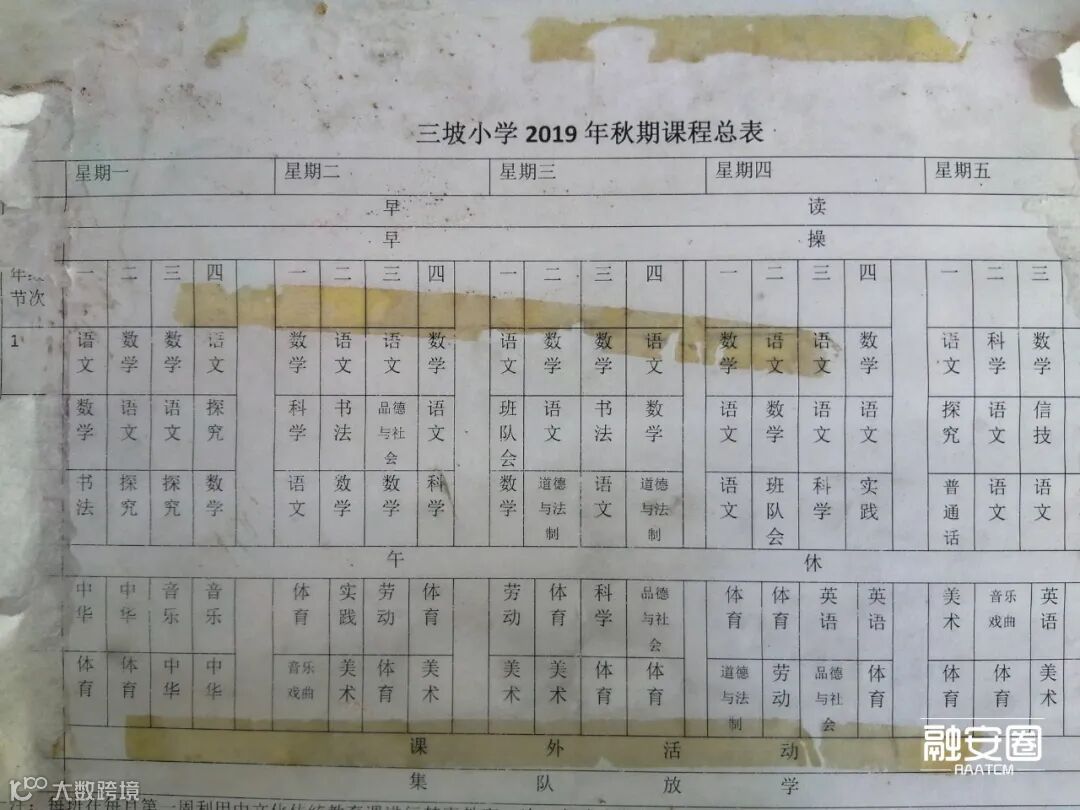 三坡小学 2019 年秋期课程总表
星期一 星期二 星期三 星期四 星期五
早 读
早 操
一 二 三 四 一 二 三 四 一 二 三 四 一 二 三 四 一 二 三
节次
1 语文 数学 数学 语文 数学 语文 语文 数学 语文 数学 数学 语文 数学 语文 语文 数学 语文 科学 数学
数学 语文 语文 探究 科学 书法 品德与社会 语文 班队会 语文 书法 数学 语文 数学 语文 语文 探究 语文 信技
书法 探究 探究 数学 语文 数学 数学 科学 数学 道德与法制 语文 道德与法制 语文 班队会 科学 实践 普通话 语文 语文
午 休
中华 中华 音乐 音乐 体育 实践 劳动 体育 劳动 体育 科学 品德与社会 体育 体育 英语 英语 美术 音乐戏曲 英语
体育 体育 中华 中华 音乐戏曲 美术 体育 美术 美术 美术 体育 体育 道德与法制 劳动 品德与社会 体育 体育 体育 美术
课 外 活 动
集 队 放 学
融安圈
RAATCM
大数跨境